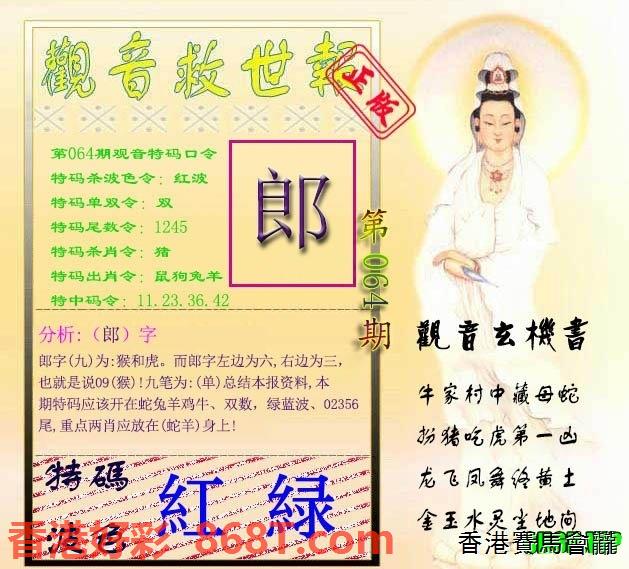 觀音救世報
正版
第064期观音特码口令
特码杀波色令：红波
特码单双令：双
特码尾数令：1245
特码杀肖令：猪
特码出肖令：鼠狗兔羊
特中码令：11.23.36.42
郎
第064期
分析:（郎）字
郎字(九)为:猴和虎。而郎字左边为六,右边为三,
也就是说09(猴)!九笔为:(单)总结本报资料,本
期特码应该开在蛇兔羊鸡牛、双数，绿蓝波、02356
尾,重点两肖应放在(蛇羊)身上!
特碼
波色
紅 绿
觀音玄機書
牛家村中藏母蛇
扮猪吃虎第一凶
龙飞凤舞终黄土
金玉水灵尘地间
香港好彩-868T.com
香港賽馬會